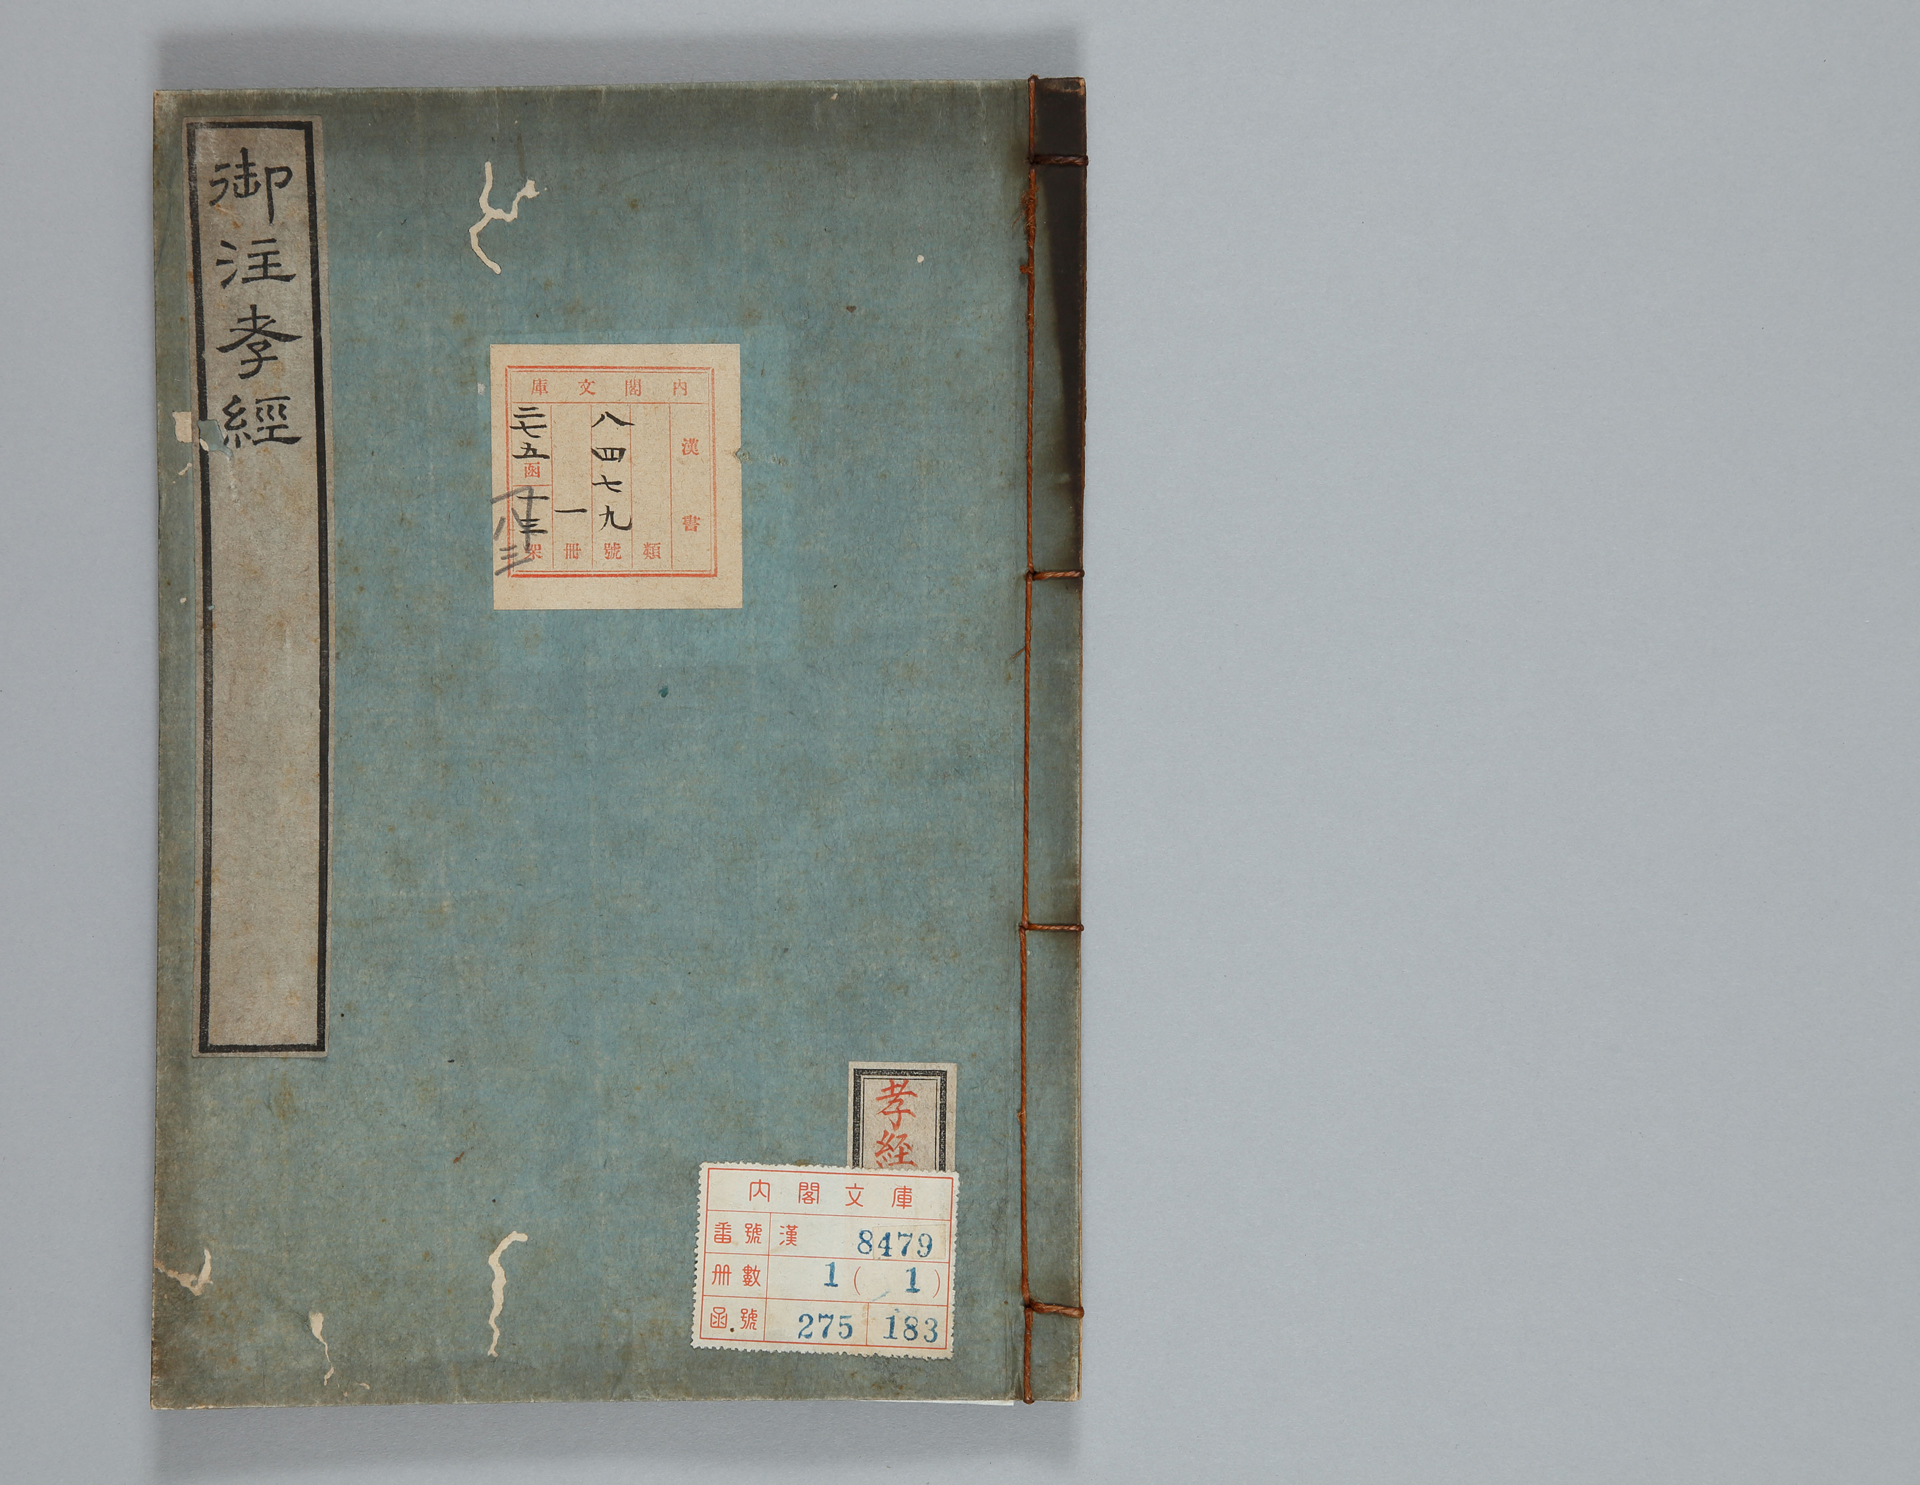 御注孝經
内閣文庫
漢書
類
八四七九號
一冊
二七五函
十三架
八三
孝経
内閣文庫
番號 漢 8479
冊數 1(1)
函號 275 183